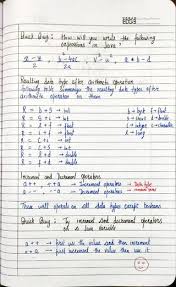 Quick Quiz : How will you write the following
expressions in Java?
x - y / 2 , b² - 4ac / 2a , v² - u² , a * b - d
Resulting data type after arithmetic operation
following table summarizes the resulting data types after
arithmetic operation on them
R = b + s → int
R = s + i → int
R = l + f → float
R = i + f → float
R = c + i → int
R = c + s → int
R = l + d → double
R = f + d → double
b → byte
f → float
s → short
d → double
i → integer
c → character
l → long
Increment and Decrement operators
a++ , ++a → Increment operators
a-- , --a → Decrement operators
These will operate on all data types except boolean
Quick Quiz : Try increment and decrement operators
on a Java variable
a++ → first use the value and then increment
++a → first increment the value then use it